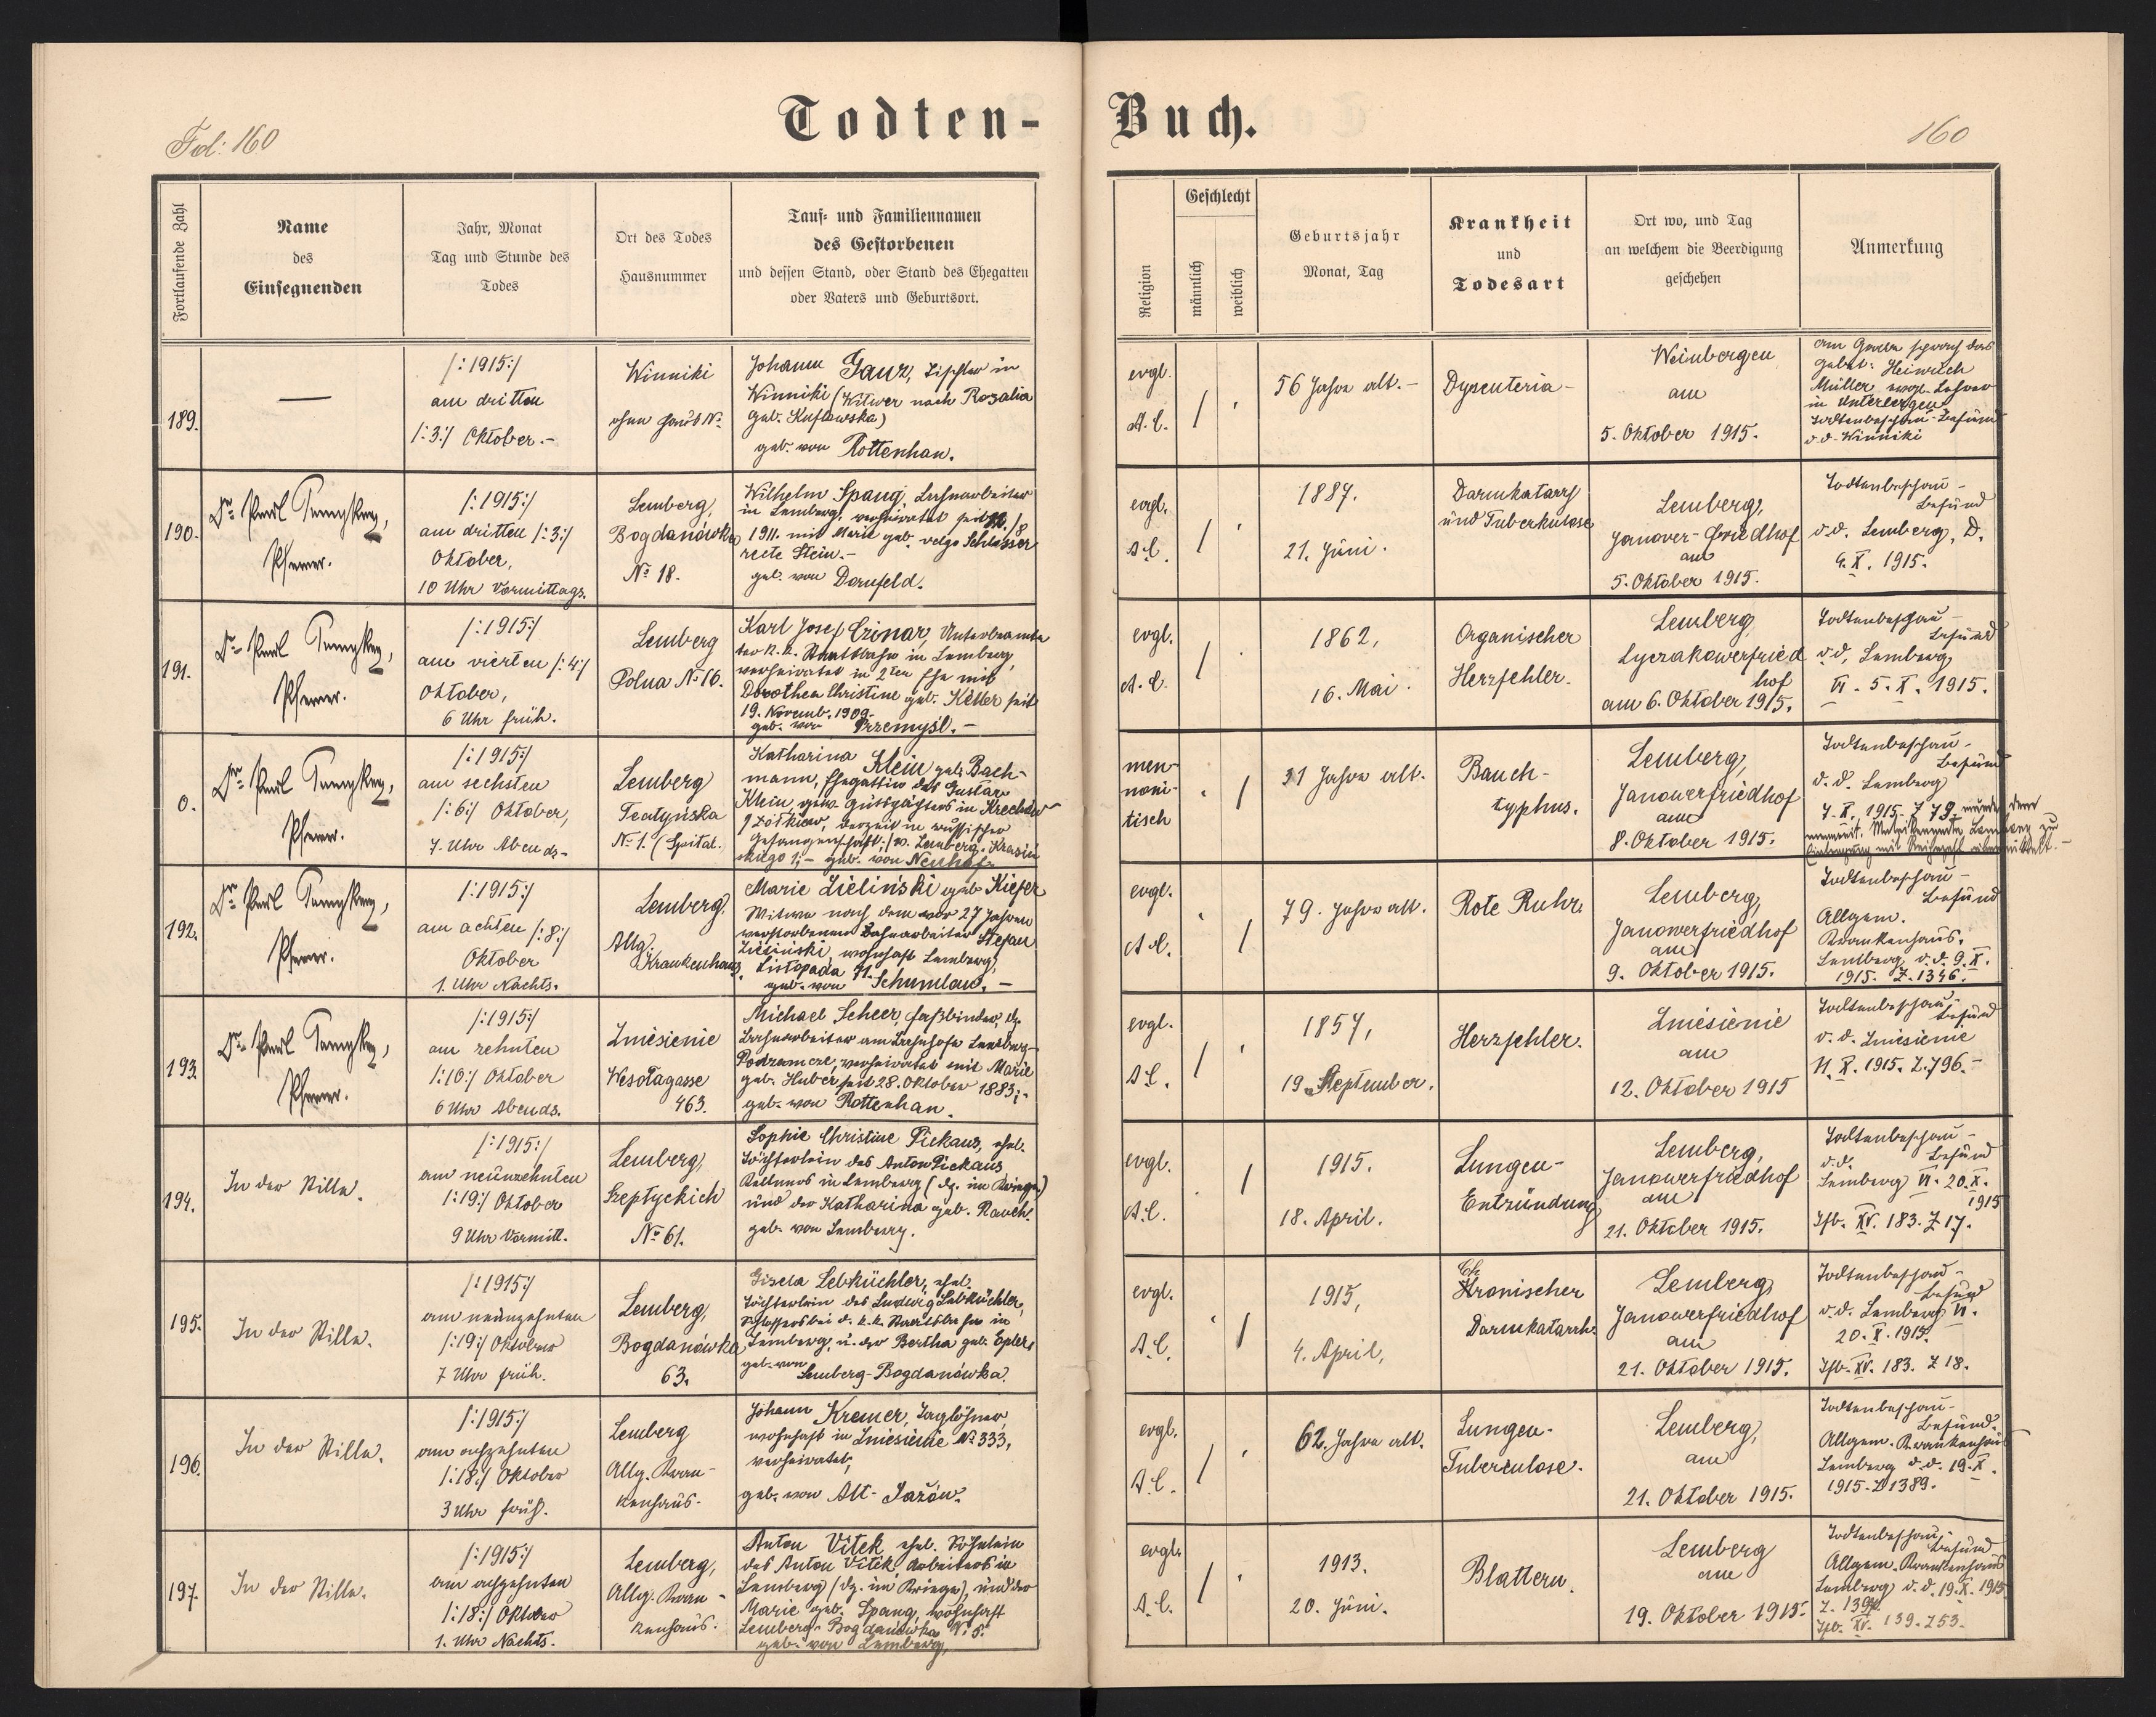 Fol: 160
Todten-
Buch.
160
Fortlaufende Zahl
Name
des
Einsegnenden
Jahr, Monat
Tag und Stunde des
Todes
Ort des Todes
Hausnummer
Tauf- und Familiennamen
des Gestorbenen
und dessen Stand, oder Stand des Ehegatten
oder Vaters und Geburtsort.
Religion
Geschlecht
männlich
weiblich
Geburtsjahr
Monat, Tag
Krankheit
und
Todesart
Ort wo, und Tag
an welchem die Beerdigung
geschehen
Anmerkung
189.
—
/:1915:/
am dritten
/:3:/ Oktober.-
Winniki
ohne Haus No.
Johann Ganz, Tischler in
Winniki (Witwer nach Rosalia
geb.
geb. von Rottenhan.
evgl.
A.C.
/
56 Jahre alt.-
Dysenteria-
Weinbergen
am
5. Oktober 1915.
am Grabe sprach das
Gebet: Heinrich
Müller, evgl. Lehrer
in Unterbergen
Todtenbeschau-Befund
d.d. Winniki
190.
Dr.
Pfarrer.
/:1915:/
am dritten /:3:/
Oktober,
10 Uhr Vormittags.
Lemberg,
Bogdanówka
No 18.
Wilhelm Spang, Bahnarbeiter
in Lemberg, verheiratet seit 12./8
1911. mit Marie geb. vulgo Schlosser
recte Stein.-
geb. von Dornfeld.
evgl.
A.C.
/
1887.
21. Juni.
Darmkatarrh
und Tuberkulose
Lemberg,
Janower-Friedhof
am
5. Oktober 1915.
Todtenbeschau-
Befund
d.d. Lemberg, D.
4. X. 1915.
191.
Dr.
Pfarrer.
/:1915:/
am vierten /:4:/
Oktober,
6 Uhr früh.
Lemberg
Polna No 16.
Karl Josef Czinar, Unterbeamte
der k.k. Staatsbahn in Lemberg,
verheiratet in 2ter Ehe mit
Dorothea Christine geb. Keller seit
19. Novemb. 1909.
geb. von Przemysl.-
evgl.
A.C.
/
1862,
16. Mai.
Organischer
Herzfehler.
Lemberg,
Lyczakowerfried
hof
am 6. Oktober 1915.
Todtenbeschau-
Befund
d.d. Lemberg
VI. 5. X. 1915.
0.
Dr.
Pfarrer.
/:1915:/
am sechsten
/:6:/ Oktober,
7. Uhr Abends-
Lemberg
Teatyńska
No 1. (Spital.
Katharina Klein geb. Bach-
mann, Ehegattin des Gustav
Klein, gew. Gutspächters in Krechów
/Żółkiew, derzeit in russischer
Gefangenschaft;/ w. Lemberg, Krasic
kiego 1;- geb. von Neuhof-
men-
noni-
tisch
/
31 Jahre alt.
Bauch-
typhus.
Lemberg,
Janowerfriedhof
am
8. Oktober 1915.
Todtenbeschau-
Befund
d.d. Lemberg
7. X. 1915. Z 79. wurde dem
mennonit. Matrikenamte Lemberg zu
192.
Dr.
Pfarrer.
/:1915:/
am achten /:8:/
Oktober
1. Uhr Nachts.
Lemberg,
Allg.
Krankenhaus.
Marie Zieliński geb. Kiefer
Witwe nach dem vor 27 Jahren
verstorbenen Bahnarbeiter Stefan
Zieliński, wohnhaft Lemberg,
Listopada 71.
geb. von Schumlau.-
evgl.
A.C.
/
79. Jahre alt.
Rote Ruhr.
Lemberg,
Janowerfriedhof
am
9. Oktober 1915.
Todtenbeschau-
Befund
Allgem.
Krankenhaus.
Lemberg d.d. 9. X.
1915. Z. 1346.
193.
Dr.
Pfarrer.
/:1915:/
am zehnten
/:10:/ Oktober
6 Uhr Abends.
Zniesienie
Wesołagasse
463.
Michael Scheer, Faßbinder, dz.
Bahnarbeiter am Bahnhofe Lemberg-
Podzamcze, verheiratet mit Marie
geb. Huber seit 28. Oktober 1883;-
geb. von Rottenhan.
evgl.
A.C.
/
1857,
19. September.
Herzfehler.
Zniesienie
am
12. Oktober 1915
Todtenbeschau-
Befund
d.d. Zniesienie
11. X. 1915. Z. 796.-
194.
In der Stille.
/:1915:/
am neunzehnten
/:19:/ Oktober
9 Uhr Vormitt.
Lemberg,
Szeptyckich
No 61.
Sophie Christine Pickaus, ehel.
Töchterlein des Anton Pickaus,
Kellners in Lemberg (dz. im Kriege)
und der Katharina geb. Rauch.
geb. von Lemberg.
evgl.
A.C.
/
1915.
18. April.
Lungen-
Entzündung
Lemberg,
Janowerfriedhof
am
21. Oktober 1915.
Todtenbeschau-
d.d. Befund
Lemberg VI. 20. X.
1915
XV. 183. Z 17.
195.
In der Stille.
/:1915:/
am neunzehnten
/:19:/ Oktober
7 Uhr früh.
Lemberg,
Bogdanówka
63.
Gisela Lebküchler, ehel.
Töchterlein des Ludwig Lebküchler,
Schlossers bei d. k.k. Staatsbahn in
Lemberg, u. der Bertha geb. Eplers
geb. von
Lemberg-Bogdanówka.
evgl.
A.C.
/
1915,
4. April,
Chronischer
Darmkatarrh.
Lemberg,
Janowerfriedhof
am
21. Oktober 1915.
Todtenbeschau-
Befund
d.d. Lemberg VI.
20. X. 1915.
XV. 183. Z 18.
196.
In der Stille.
/:1915:/
am achzehnten
/:18:/ Oktober
3 Uhr früh.
Lemberg
Allg. Kran-
kenhaus.
Johann Kremer, Taglöhner,
wohnhaft in Zniesienie No 333,
verheiratet;
geb. von Alt-Jażów.
evgl.
A.C.
/
62. Jahre alt.
Lungen-
Tuberculose.
Lemberg,
am
21. Oktober 1915.
Todtenbeschau-
Befund.
Allgem. Krankenhaus
Lemberg d.d. 19. X.
1915. Z 1389.
197.
In der Stille.
/:1915:/
am achzehnten
/:18:/ Oktober
1. Uhr Nachts.
Lemberg,
Allg. Kran-
kenhaus.
Anton Vitek, ehel. Söhnlein
des Anton Vitek, Arbeiters in
Lemberg (dz. im Kriege), und der
Marie geb. Spang, wohnhaft
Lemberg-Bogdanówka No 5.
geb. von Lemberg,
evgl.
A.C.
/
1913.
20. Juni.
Blattern.
Lemberg
am
19. Oktober 1915.
Todtenbeschau-
Befund
Allgem. Krankenhaus
Lemberg d.d. 19. X. 1915
XV. 139. Z 53.